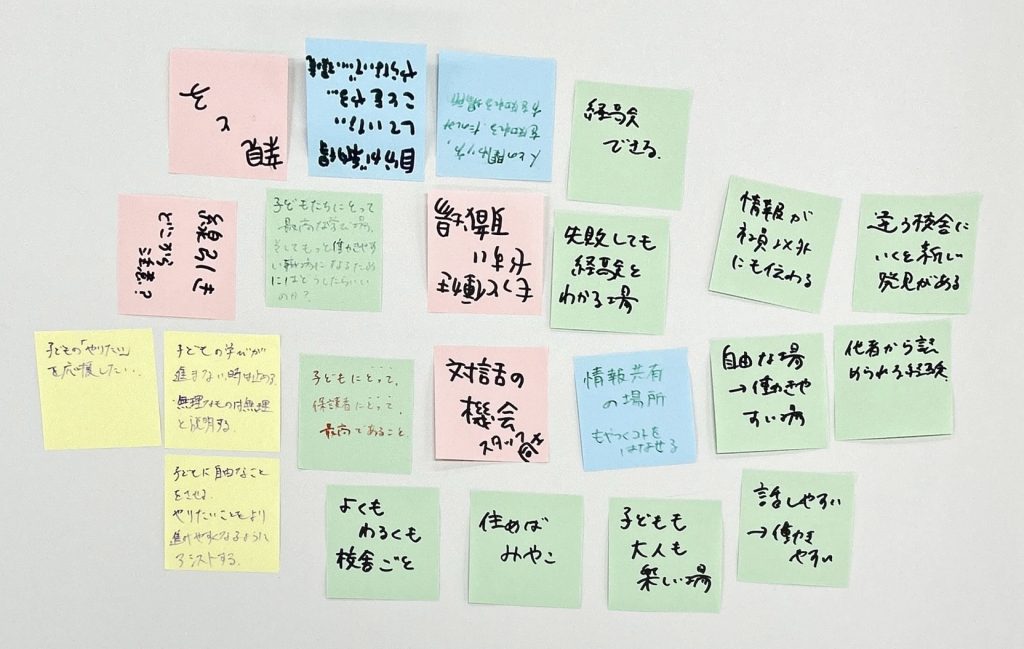 親
と
子
自分が納得
していない
こと
人との関わり方、
経験
できる。
線引き
どこから
注意?
子どもたちにとって
最高な学び場、
そしてもっと働きやす
い職場になるため
にはどうしたらいい
のか?
失敗しても
経験と
わかる場
情報が
にも伝わる
違う校舎に
いくと新しい
発見がある
子どもの「やりたい」
を応援したい…
子どもの学びが
進まない時は止める。
無理なものは無理
と説明する。
子どもにとって、
保護者にとって、
最高であること。
対話の
機会
スタッフ同士
情報共有
の場所
もやつくコトを
はなせる
自由な場
→働きや
すい場
他者から認
められる経験
子どもに自由なこと
をさせる。
やりたいことをより
進めやすくなるように
アシストする。
よくも
わるくも
校舎ごと
住めば
みやこ
子どもも
大人も
楽しい場
話しやすい
→働き
やすい